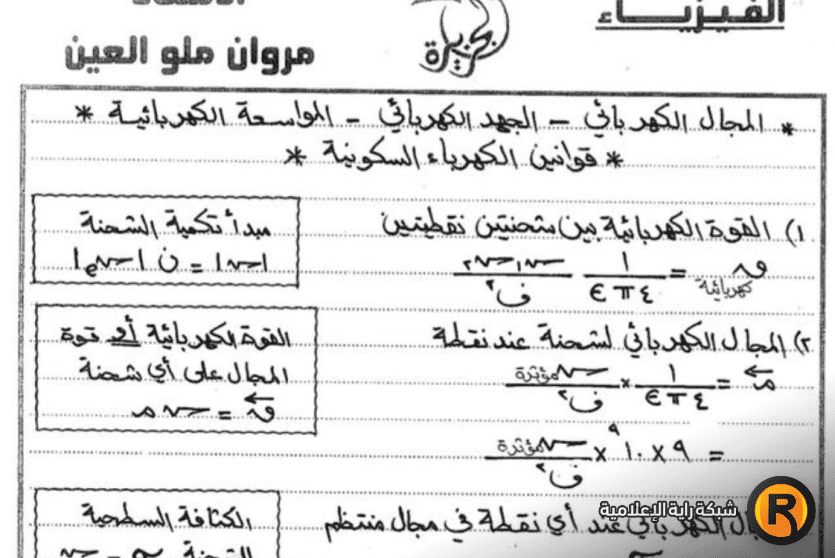 الفيزياء
الجزيرة
الأستاذ
مروان ملو العين
* المجال الكهربائي - الجهد الكهربائي - المواسعة الكهربائية *
* قوانين الكهرباء السكونية *
١) القوة الكهربائية بين شحنتين نقطيتين
ق كهربائية = ١/(٤ π ε) س١ س٢/ف٢
مبدأ تكمية الشحنة
|س| = ن |سe|
٢) المجال الكهربائي لشحنة عند نقطة
م = ١/(٤ π ε) × س مؤثرة/ف٢
= ٩ × ١٠^٩ × س مؤثرة/ف٢
القوة الكهربائية أو قوة
المجال على أي شحنة
ق = س م
الكهربائي عند أي نقطة في مجال منتظم
الكثافة السطحية
شبكة راية الإعلامية
R